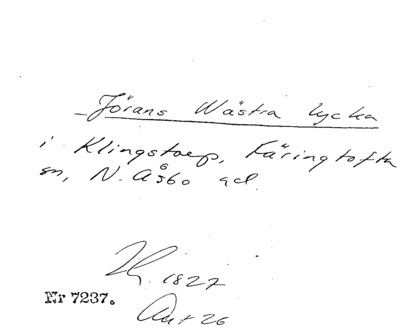 Jörans Wästra lycka
i Klingstorp, Färingtofta
sn, N. Åsbo hd.
Hy. 1827
Nr 7237.
Akt 26